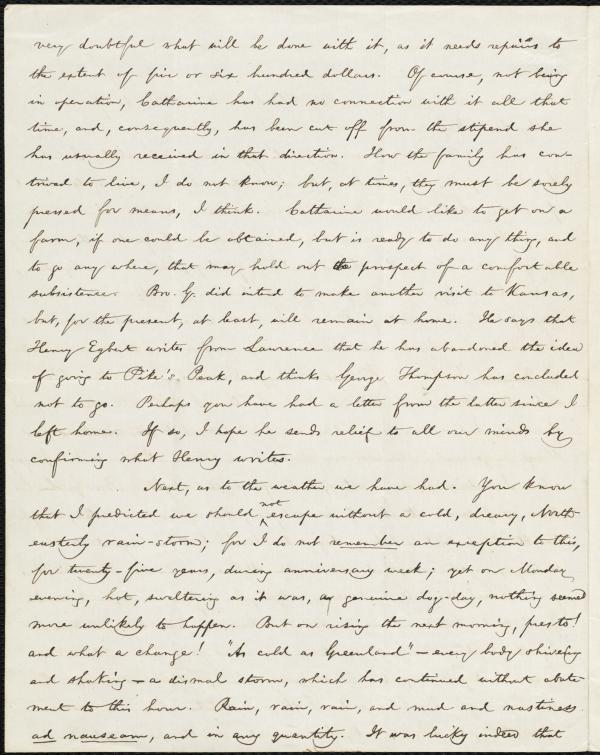 very doubtful what will be done with it, as it needs repairs to
the extent of five or six hundred dollars. Of course, not being
in operation, Catharine has had no connection with it all that
time, and, consequently, has been cut off from the stipend she
has usually received in that direction. How the family has con-
trived to live, I do not know; but, at times, they must be sorely
pressed for means, I think. Catharine would like to get on a
farm, if one could be obtained, but is ready to do any thing, and
to go any where, that may hold out the prospect of a comfortable
subsistence. Bro. G. did intend to make another visit to Kansas,
but, for the present, at least, will remain at home. He says that
Henry Egbert writes from Lawrence that he has abandoned the idea
of going to Pike's Peak, and thinks George Thompson has concluded
not to go. Perhaps you have had a letter from the latter since I
left home. If so, I hope he sends relief to all our minds by
confirming what Henry writes.
Next, as to the weather we have had. You know
that I predicted we should not escape without a cold, dreary, North-
easterly rain-storm; for I do not remember an exception to this,
for twenty-five years, during anniversary week; yet on Monday
evening, hot, sweltering as it was, a genuine dog-day, nothing seemed
more unlikely to happen. But on rising the next morning, presto!
and what a change! "As cold as Greenland" – every body shivering
and shaking – a dismal storm, which has continued without abate-
ment to this hour. Rain, rain, rain, and mud and nastiness
ad nauseam, and in any quantity. It was lucky indeed that